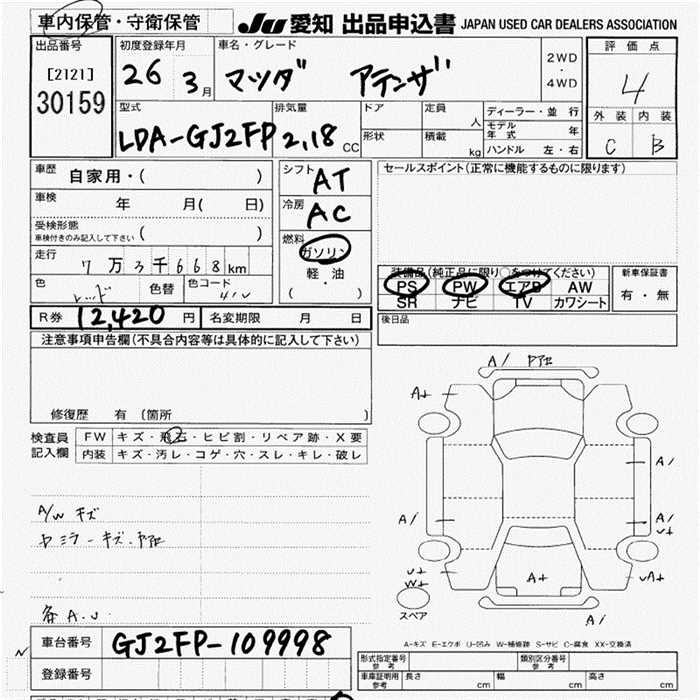 車内保管・守衛保管
JU 愛知 出品申込書 JAPAN USED CAR DEALERS ASSOCIATION
出品番号
[2121]
30159
初度登録年月
26 3月
車名・グレード
マツダ アテンザ
2WD
・
4WD
評価点
4
外装 内装
C B
型式
LDA-GJ2FP
排気量
2,18 CC
ドア
定員 人
形状
積載 kg
ディーラー・並行
モデル年式 年
ハンドル 左・右
車歴 自家用・( )
車検 年 月( 日)
受検形態
車検付きのみ記入して下さい ( )
走行
7万3千668km
色 レッド 色替 色コード 41V
シフト
AT
冷房
AC
燃料
ガソリン
軽・油
( )
セールスポイント(正常に機能するものに限ります)
装備品(純正品に限り○をつけてください)
PS PW エアB AW
SR ナビ TV カワシート
新車保証書
有・無
後日品
R券 12,420 円 名変期限 月 日
注意事項申告欄(不具合内容等は具体的に記入して下さい)
修復歴 有(箇所 )
検査員
記入欄
FW キズ・飛石・ヒビ割・リペア跡・X要
内装 キズ・汚レ・コゲ・穴・スレ・キレ・破レ
A/W キズ
ミラーキズ
各A.U
A/
A+
A/
A/
A/
U+
U+
W+
A+
UA+
A/
スペア
A-キズ E-エクボ U-凹み W-補修跡 S-サビ C-腐食 XX-交換済
車台番号 GJ2FP-109998
登録番号
形式指定番号
参考
類別区分番号
参考
車庫証明用
参考
長さ cm 幅 cm 高さ cm